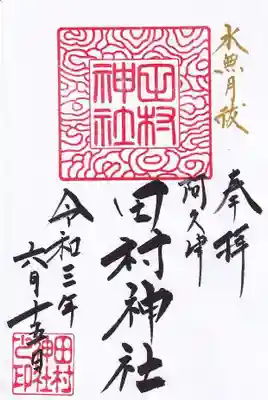 水無月祓
奉拝
阿久津
田村神社
田村神社
令和三年
六月十五日
田村神社之印